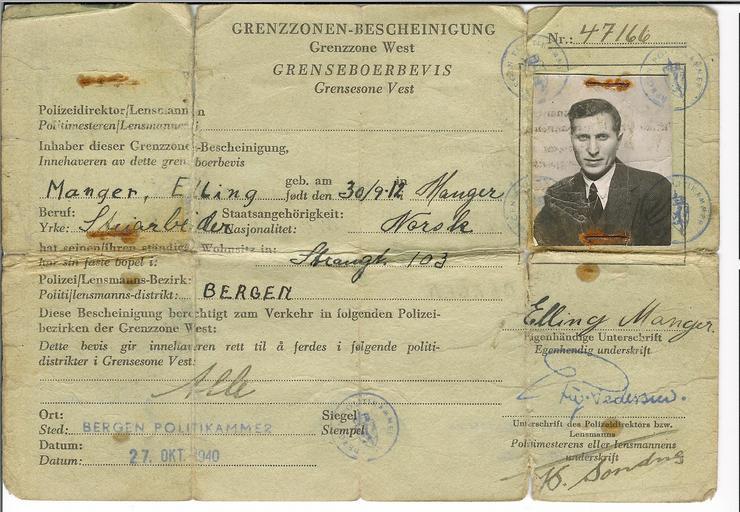 GRENZZONEN-BESCHEINIGUNG
Grenzzone West
GRENSEBOERBEVIS
Grensesone Vest
Nr.: 47166
Polizeidirektor/Lensmannen
Politimesteren/Lensmannen i
Inhaber dieser Grenzzonen-Bescheinigung,
Innehaveren av dette grenseboerbevis
Manger, Elling geb. am født den 30/9-12 in i Manger
Beruf: Staatsangehörigkeit:
Yrke: Nasjonalitet: Norsk
hat seinen/ihren ständigen Wohnsitz in:
har sin faste bopel i: Strangt. 103
Polizei/Lensmanns-Bezirk:
Politi/lensmanns-distrikt: BERGEN
Diese Bescheinigung berechtigt zum Verkehr in folgenden Polizei-
bezirken der Grenzzone West:
Dette bevis gir innehaveren rett til å ferdes i følgende politi-
distrikter i Grensesone Vest:
Alle
Ort: Siegel
Sted: BERGEN POLITIKAMMER Stempel
Datum:
Datum: 27. OKT. 1940
Elling Manger.
Eigenhändige Unterschrift
Egenhendig underskrift
Pedersen.
Unterschrift des Polizeidirektors bzw.
Lensmanns
Politimesterens eller lensmannens
underskrift